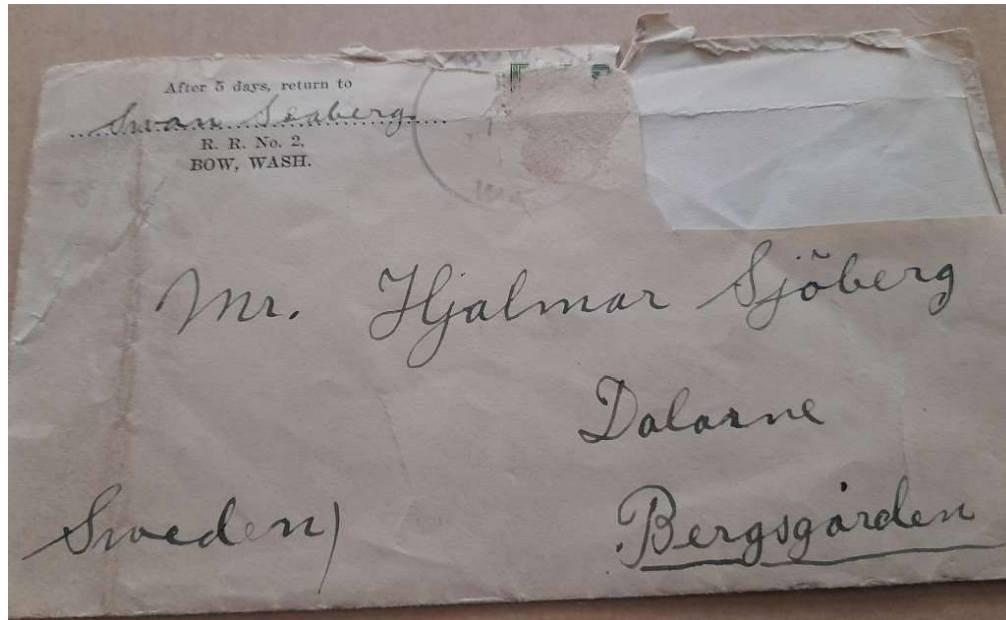 After 5 days, return to
Swan Seaberg
R. R. No. 2,
BOW, WASH.
Mr. Hjalmar Sjöberg
Dalarne
Bergsgården
Sweden